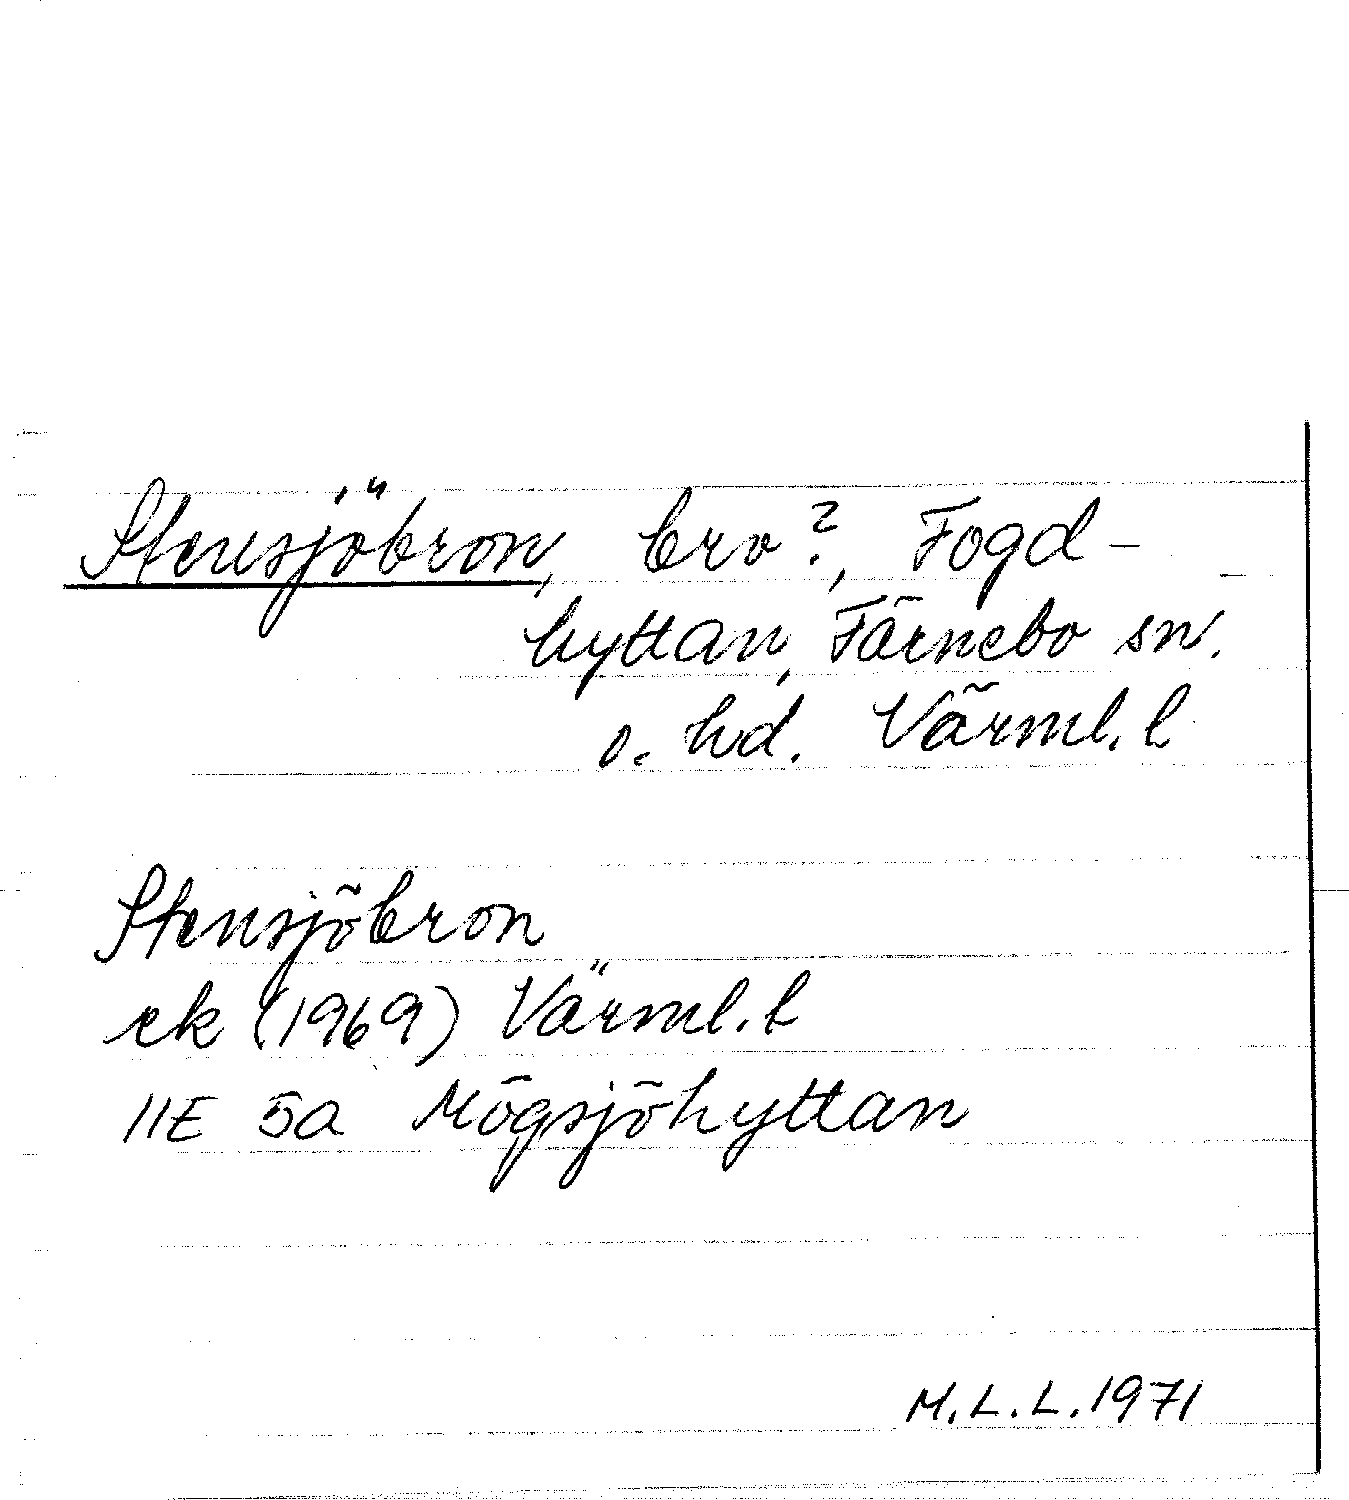 Stensjöbron, bro?, Fogd-
hyttan, Färnebo sn.
o. hd. Värml. l
Stensjöbron
ek (1969) Värml. l
11E 5a Mögsjöhyttan
M.L.L. 1971